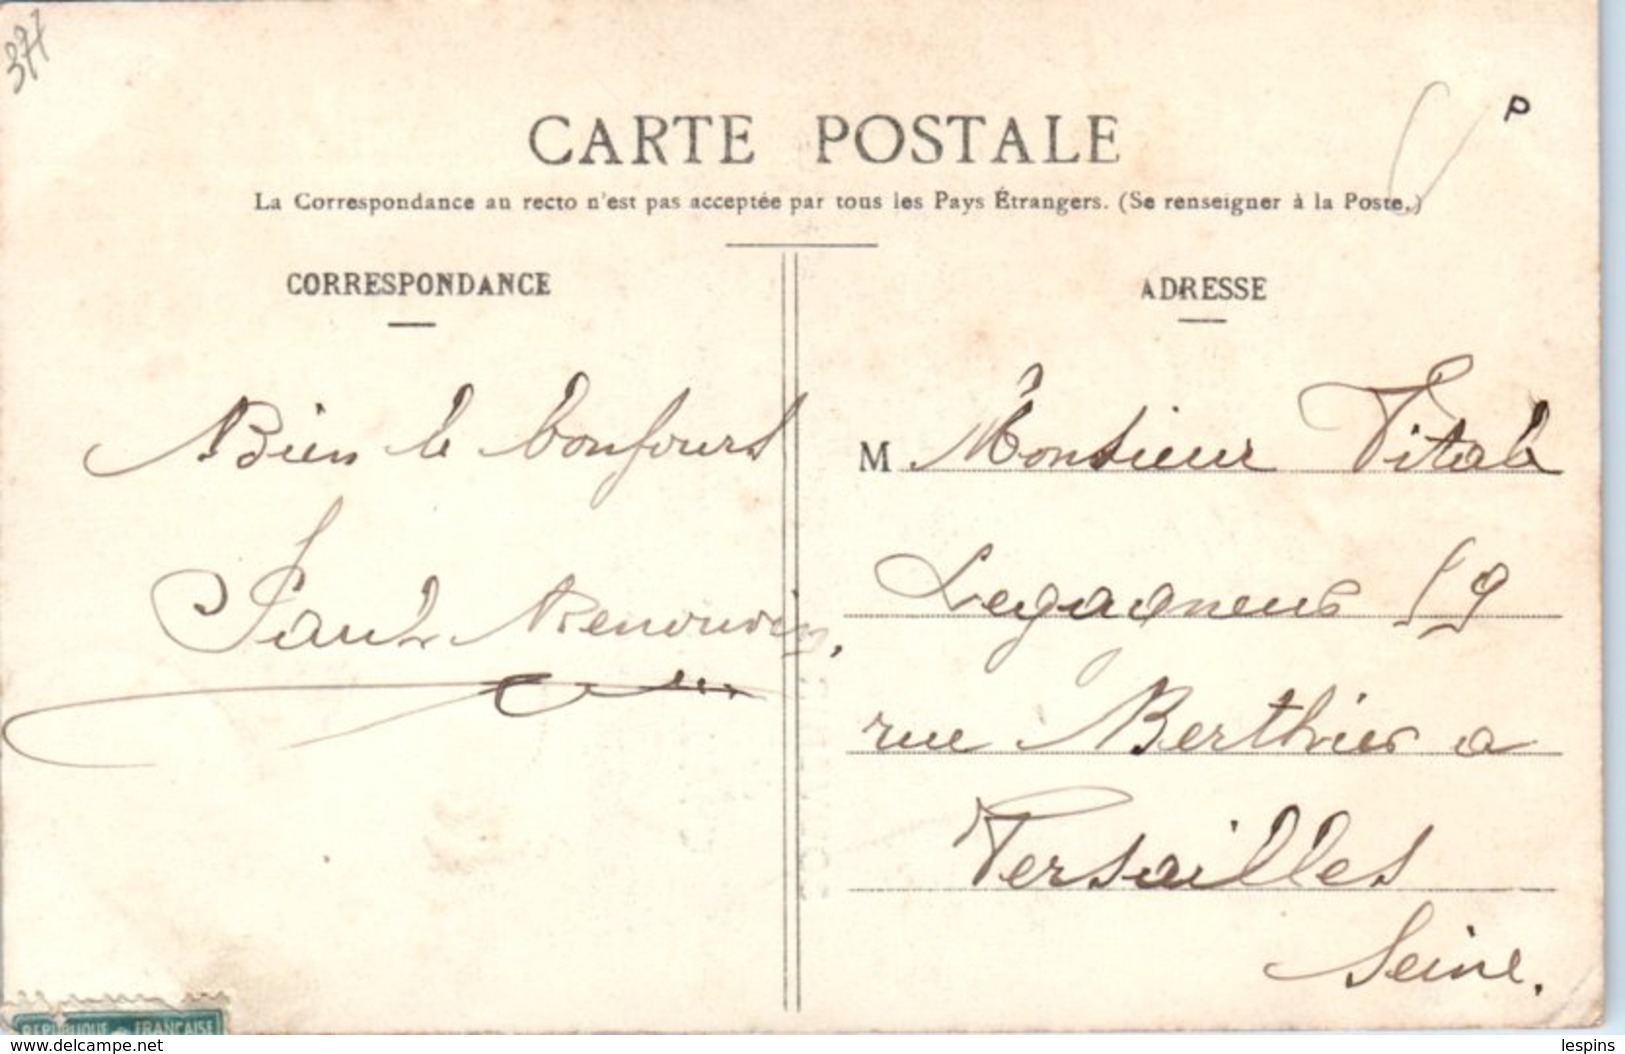 377
CARTE POSTALE
P
La Correspondance au recto n'est pas acceptée par tous les Pays Étrangers. (Se renseigner à la Poste.)
CORRESPONDANCE
Bien le bonjours
Paul Renouvin,
ADRESSE
M Monsieur Vitale
Legagneur 59
rue Berthier a
Versailles
Seine.
REPUBLIQUE FRANÇAISE
www.delcampe.net
lespins